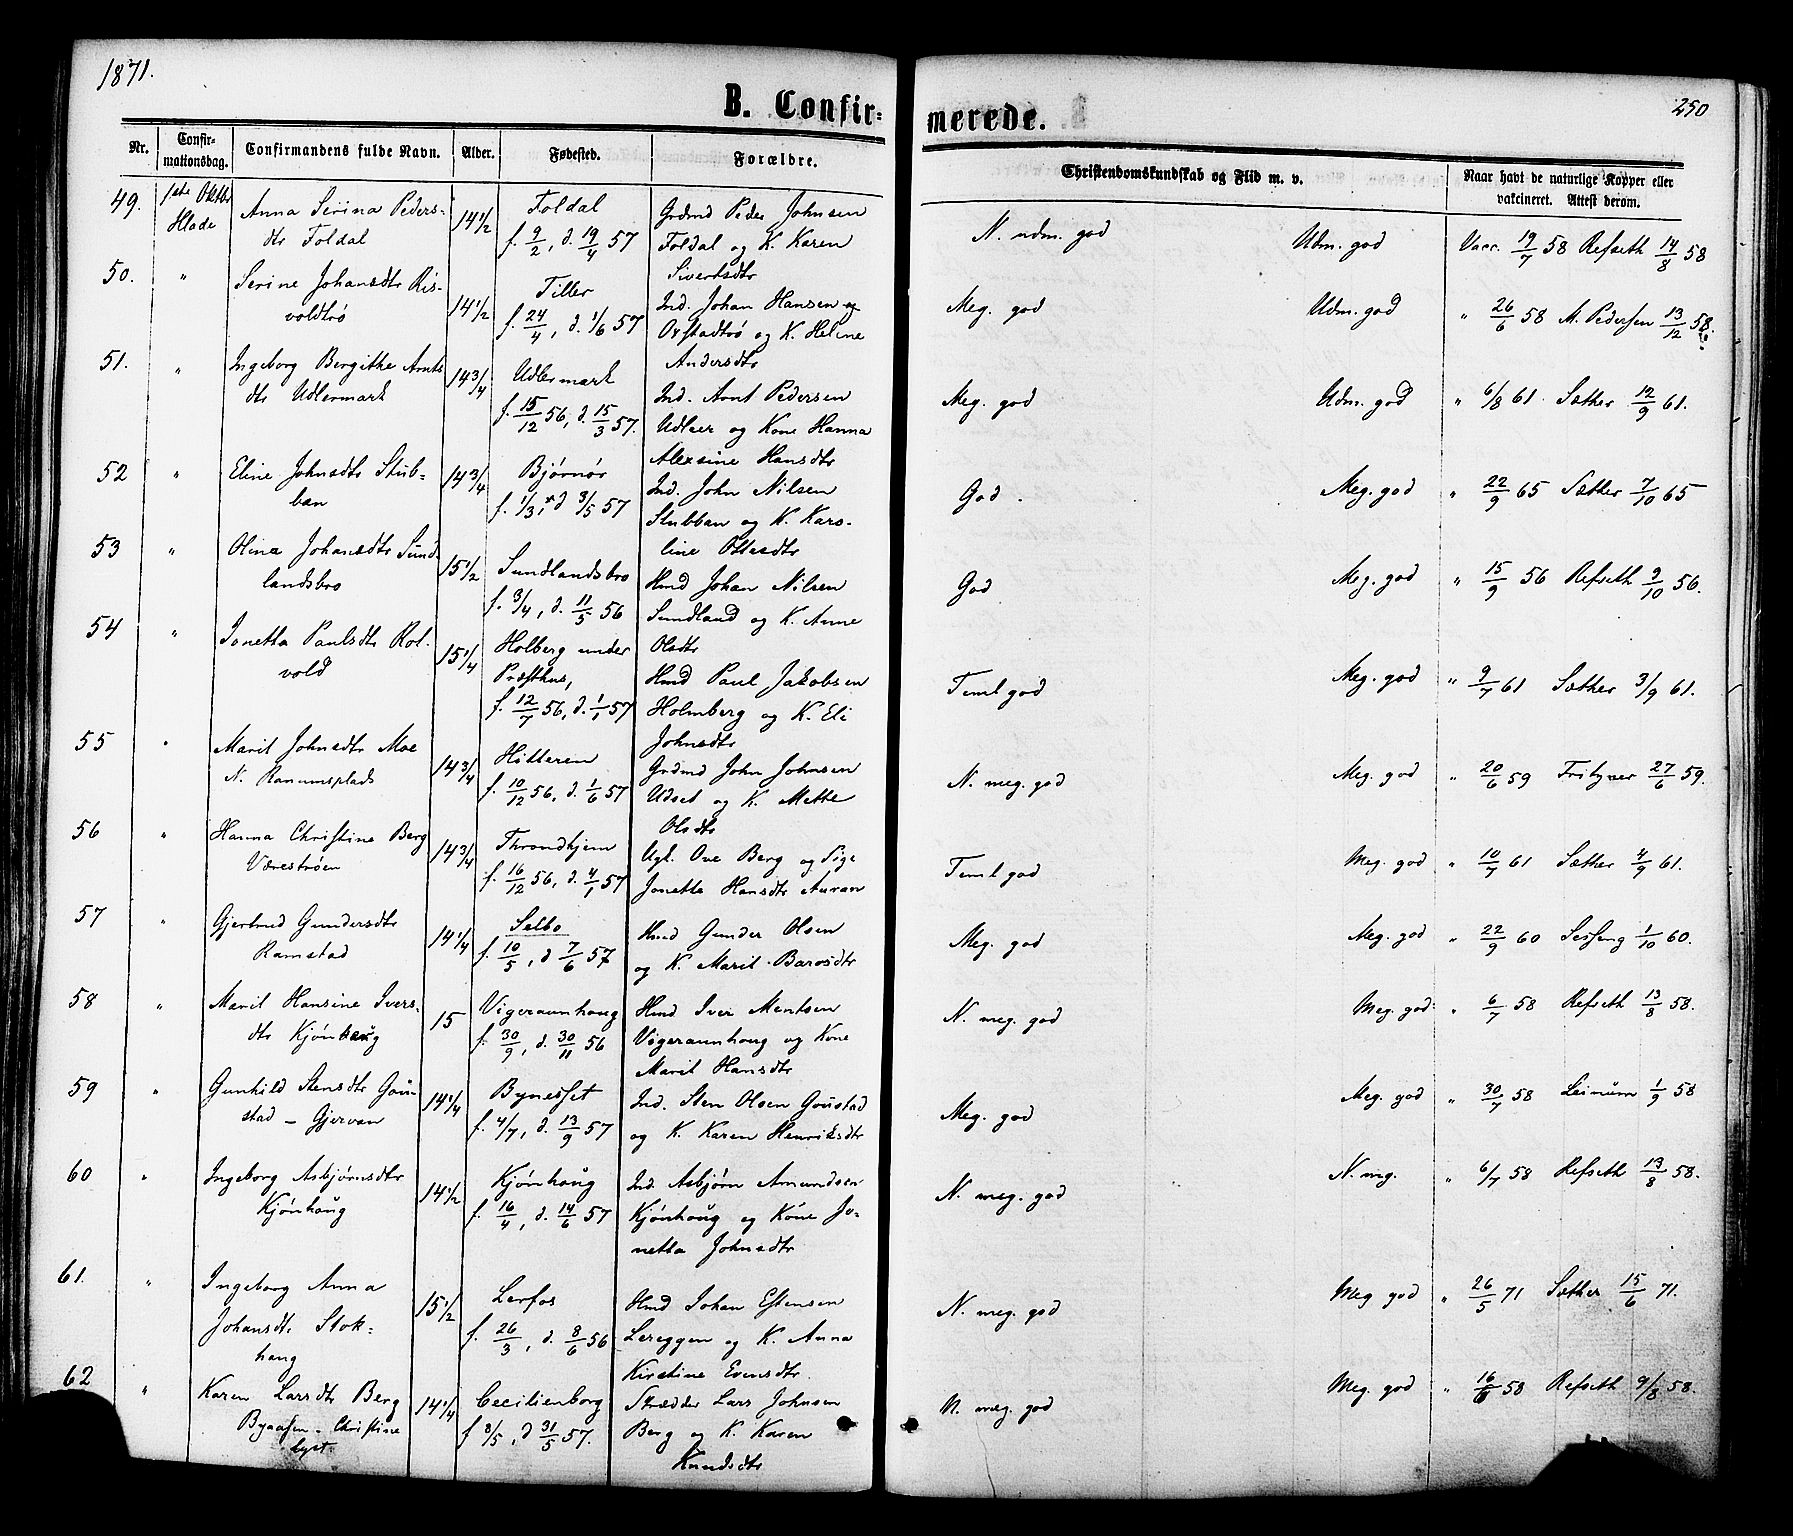 1871.
250
B. Confir-
merede.
Nr.
Confir-
mationsdag.
Confirmandens fulde Navn.
Alder.
Fødested.
Forældre.
Christendomskundskab og Flid m. v.
Naar havt de naturlige Kopper eller
vakcineret. Attest derom.
49.
1ste Oktbr
Hlade
Anna Serina Peders-
dtr Foldal
14 1/2
Foldal
f. 9/2, d. 19/4 57
Grdmd Peder Johnsen
Foldal og K. Karen
Sivertsdtr
N. udm. god
Udm. god
Vacc. 19/7 58 Refseth 14/8 58
50.
"
Serine Johansdtr Ris-
voldtrø
14 1/2
Tiller
f. 24/4, d. 1/6 57
Ind. Johan Hansen og
Oxstadtrø og K. Heline
Andersdtr
Meg. god
Udm. god
" 26/6 58 M. Pedersen 13/12 58.
51.
"
Ingeborg Bergithe Arnts
dtr Udlermark
14 3/4
Udlermark
f. 15/12 56, d. 15/3 57.
Ind. Arnt Pedersen
Udleer og Kone Hanna
Alexsine Hansdtr
Meg. god
Udm. god
" 6/8 61. Sæther 12/9 61.
52
"
Eline Johnsdtr Stub-
ban
14 3/4
Bjørnør
f. 1/3, d 3/5 57
Ind. John Nilsen
Stubban og K. Kars-
line Ottesdtr
God
Meg. god
" 22/9 65 Sæther 7/10 65
53
"
Olina Johansdtr Sund-
landsbro
15 1/2
Sundlandsbro
f. 3/4, d. 11/5 56
Hmd Johan Nilsen
Sundland og K. Anne
Olsdtr
God
Meg. god
" 15/9 56 Refseth 9/10 56.
54
"
Jonetta Paulsdtr Rol-
vold
15 1/4
Holberg under
Præsthus,
f. 12/7 56, d. 1/1 57
Hmd Paul Jakobsen
Holmberg og K. Eli
Johnsdtr
Temt god
Meg. god
" 9/7 61 Sæther 3/9 61.
55
"
Marit Johnsdtr Moe
N. Ranumsplads
14 3/4
Hitteren
f. 10/12 56, d. 1/6 57
Grdmd John Johnsen
Udset og K. Mette
Olsdtr
N. meg. god
Meg. god
" 20/6 59 Fritzner 27/6 59.
56
"
Hanna Christine Berg
Værestrøen
14 3/4
Throndhjem
f. 16/12 56, d. 4/1 57
Ugl. Ove Berg og Pige
Jonetta Hansdtr Auran
Temt god
Meg. god
" 10/7 61 Sæther 4/9 61.
57
"
Gjertrud Gundersdtr
Ramstad
14 1/4
Selbo
f. 10/5, d 7/6 57
Hmd Gunder Olsen
og K. Marit Barosdtr
Meg. god
Meg. god
" 22/9 60 1/10 60.
58
"
Marit Hansine Ivers-
dtr Kjønhaug
15
Vigeraunhaug
f. 30/9, d. 30/11 56
Hmd Iver Mentsen
Vigeraunhaug og Kone
Marit Hansdtr
N. meg. god
Meg. god
" 6/7 58 Refseth 13/8 58.
59
"
Gunhild Stensdtr Gou-
stad - Gjervan
14 1/4
Bynesset
f. 4/7, d. 13/9 57
Ind. Sten Olsen Goustad
og K. Karen Henriksdtr
Meg. god
Meg. god
" 30/7 58 Leinum 1/9 58
60
"
Ingeborg Asbjørnsdtr
Kjønhoug
14 1/2
Kjønhoug
f. 16/4, d. 14/6 57
Ind. Asbjørn Amundsen
Kjønhoug og Kone Jo-
netta Johnsdtr
N. meg. god
N. mg.
" 6/7 58 Refseth 13/8 58.
61.
"
Ingeborg Anna
Johansdtr Stok-
haug
15 1/2
Lerfos
f. 26/3, d. 8/6 56
Hmd Johan Estensen
Lereggen og K. Anna
Kirstine Evensdtr.
N. meg. god
Meg god
" 26/5 71 Sæther 15/6 71.
62
"
Karen Larsdtr Berg
Byaasen - Christine
lyst.
14 1/4
Cecilienborg
f 8/5, d 31/5 57.
Skrædder Lars Johnsen
Berg og K. Karen
Knudsdtr
N. meg. god
Meg. god
" 16/6 58 Refseth 9/8 58.